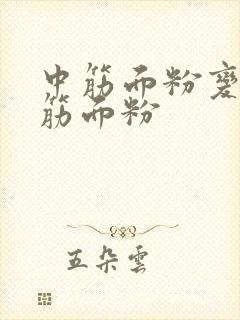 中筋面粉變
筋面粉
五朵雲